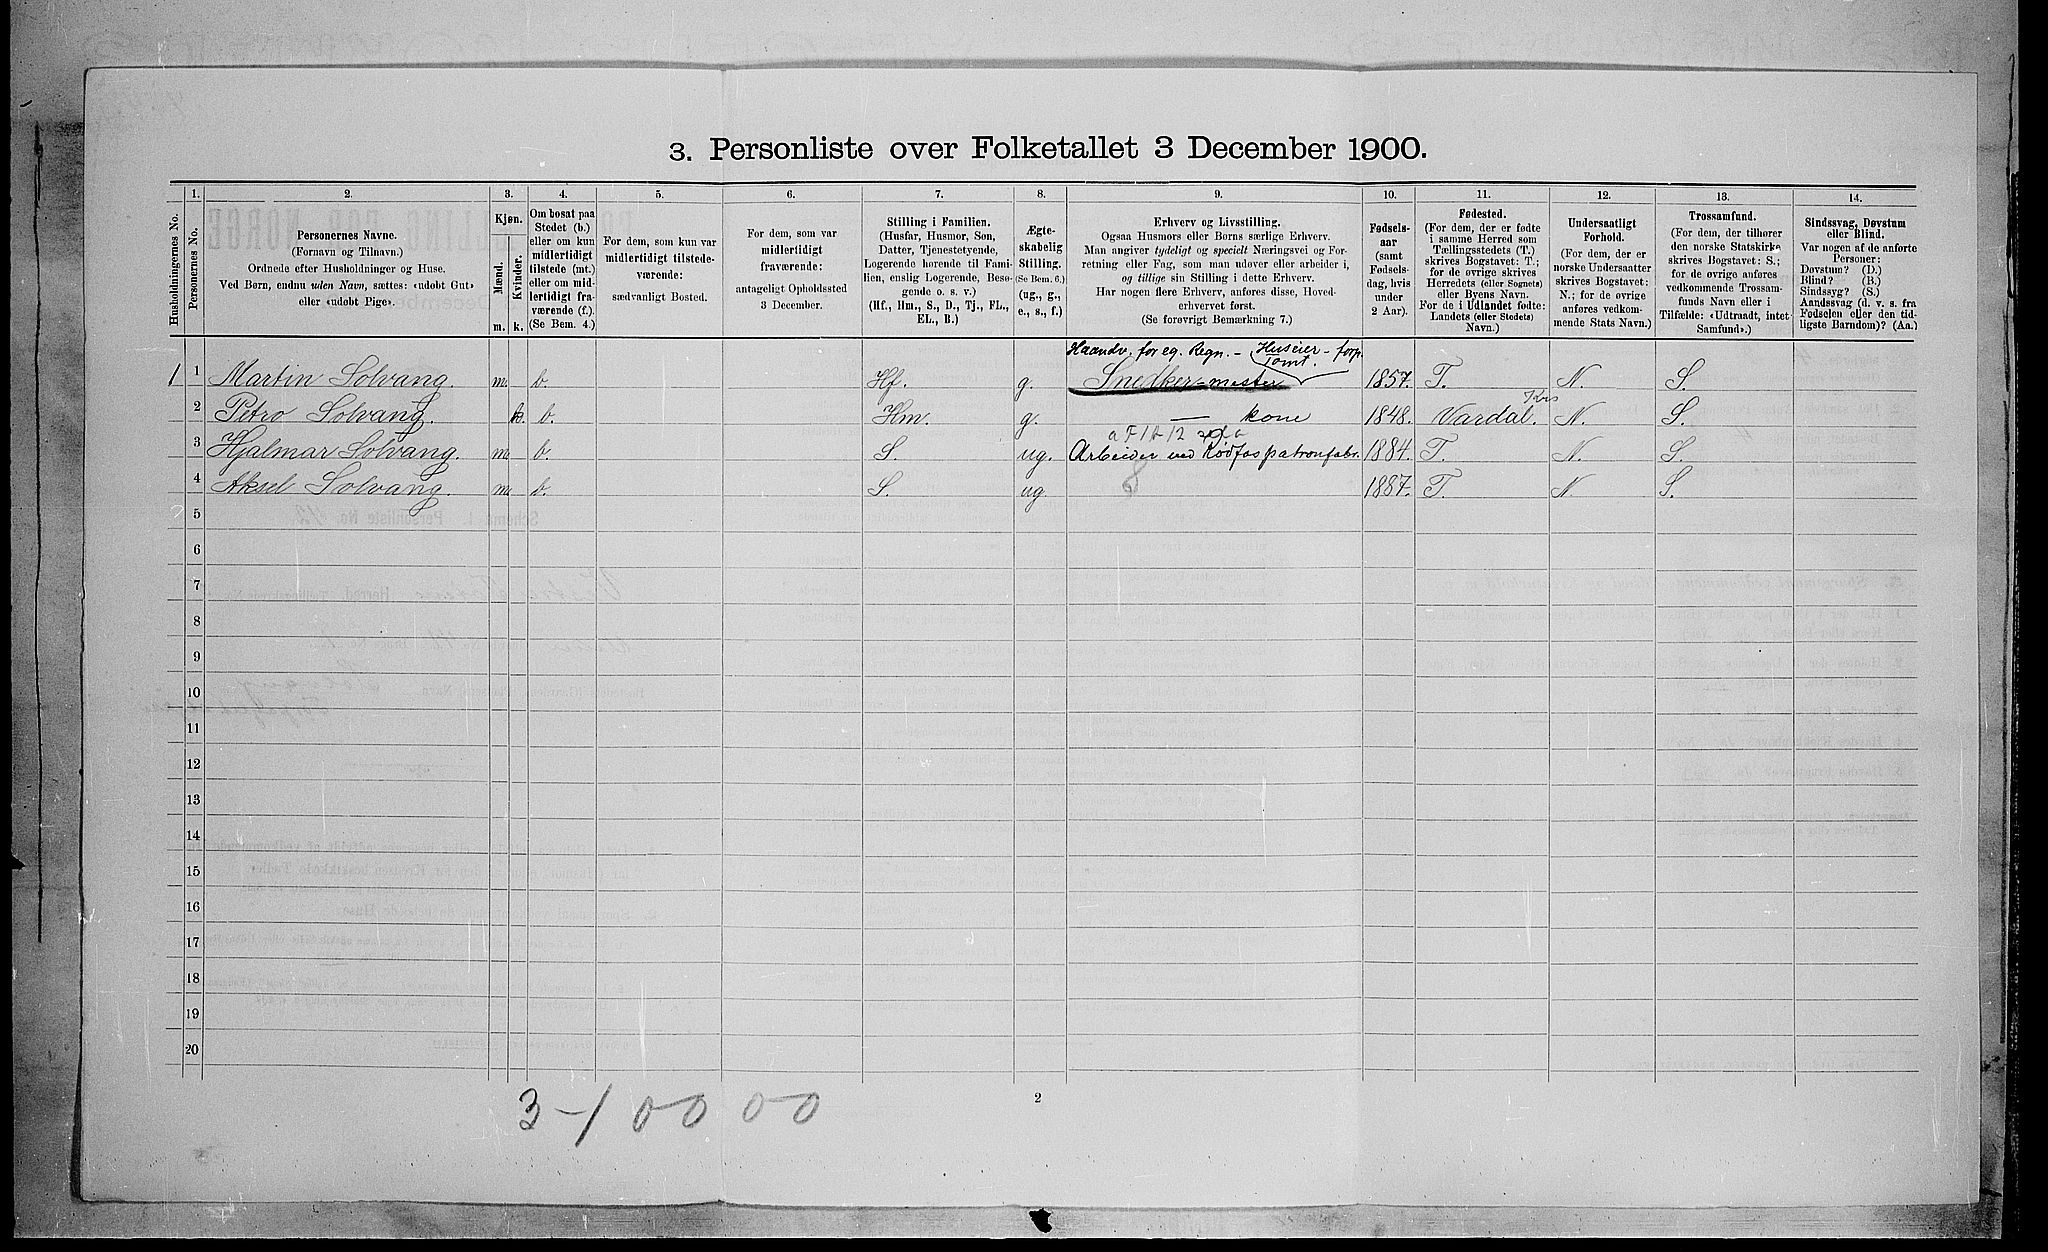 3. Personliste over Folketallet 3 December 1900.
Husholdningernes No.
1.
Personernes No.
2.
Personernes Navne.
(Fornavn og Tilnavn.)
Ordnede efter Husholdninger og Huse.
Ved Børn, endnu uden Navn, sættes: «udøbt Gut»
eller «udøbt Pige».
3.
Kjøn.
Mænd.
Kvinder.
m. k.
4.
Om bosat paa
Stedet (b.)
eller om kun
midlertidigt
tilstede (mt.)
eller om mid-
lertidigt fra-
værende (f.).
(Se Bem. 4.)
5.
For dem, som kun var
midlertidigt tilstede-
værende:
sædvanligt Bosted.
6.
For dem, som var
midlertidigt
fraværende:
antageligt Opholdssted
3 December.
7.
Stilling i Familien.
(Husfar, Husmor, Søn,
Datter, Tjenestetyende,
Logerende hørende til Fami-
lien, enslig Logerende, Besø-
gende o. s. v.)
(Hf., Hm., S., D., Tj., FL.,
EL., B.)
8.
Ægte-
skabelig
Stilling.
(Se Bem. 6.)
(ug., g.,
e., s., f.)
9.
Erhverv og Livsstilling.
Ogsaa Husmors eller Børns særlige Erhverv.
Man angiver tydeligt og specielt Næringsvei og For-
retning eller Fag, som man udøver eller arbeider i,
og tillige sin Stilling i dette Erhverv.
Har nogen flere Erhverv, anføres disse, Hoved-
erhvervet først.
(Se forøvrigt Bemærkning 7.)
10.
Fødsels-
aar
(samt
Fødsels-
dag, hvis
under
2 Aar).
11.
Fødested.
(For dem, der er fødte
i samme Herred som
Tællingsstedets (T.)
skrives Bogstavet: T.;
for de øvrige skrives
Herredets (eller Sognets)
eller Byens Navn.
For de i Udlandet fødte:
Landets (eller Stedets)
Navn.)
12.
Undersaatligt
Forhold.
(For dem, der er
norske Undersaatter
skrives Bogstavet:
N.; for de øvrige
anføres vedkom-
mende Stats Navn.)
13.
Trossamfund.
(For dem, der tilhører
den norske Statskirke
skrives Bogstavet: S.;
for de øvrige anføres
vedkommende Trossam-
funds Navn eller i
Tilfælde: «Udtraadt, intet
Samfund».)
14.
Sindssvag, Døvstum
eller Blind.
Var nogen af de anførte
Personer:
Døvstum? (D.)
Blind? (B.)
Sindssyg? (S.)
Aandssvag (d. v. s. fra
Fødselen eller den tid-
ligste Barndom)? (Aa.)
Haandv. for eg. Regn. – Huseier – forp.
Tomt.
1 1 Martin Solvang. m. b. Hf. g. Snedker-mester 1857. T. N. S.
2 Petro Solvang. k. b. Hm. g. — kone 1848. Vardal. Krs N. S.
3 Hjalmar Solvang. m b. S. ug. Arbeider ved Rødfos patronfabr. 1884. T. N. S.
4 Aksel Solvang. m. b. S. ug 1887. T. N S.
8
5
6
7
8
9
10
11
12
13
14
15
16
17
18
19
20
3 – 1 0 0 0 0
2